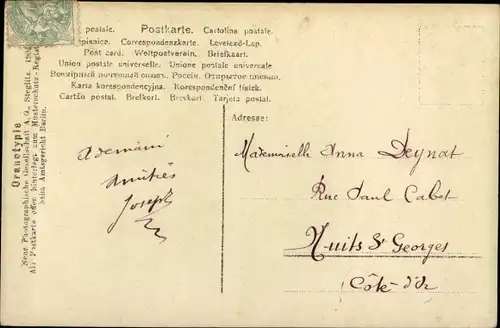 postale. Postkarte. Cartolina postale.
Correspondenzkarte. Levelező-Lap.
Post card. Weltpostverein. Briefkaart.
Union postale universelle. Unione postale universale
Всемірный почтовый союзъ. Россія. Открытое письмо.
Karta korespondencyjna. Korespondenční lístek.
Cartão postal. Brefkort. Brevkort. Tarjeta postal.
Oranotypie
Neue Photographische Gesellschaft A. G., Steglitz. 1904
Als Postkarte offen hinterlegt zum Musterschutz-Register
beim Amtsgericht Berlin.
Amitiés
Joseph
Adresse:
Mademoiselle Anna Deynat
Rue Paul Cabet
Nuits St Georges
Côte-d'Or